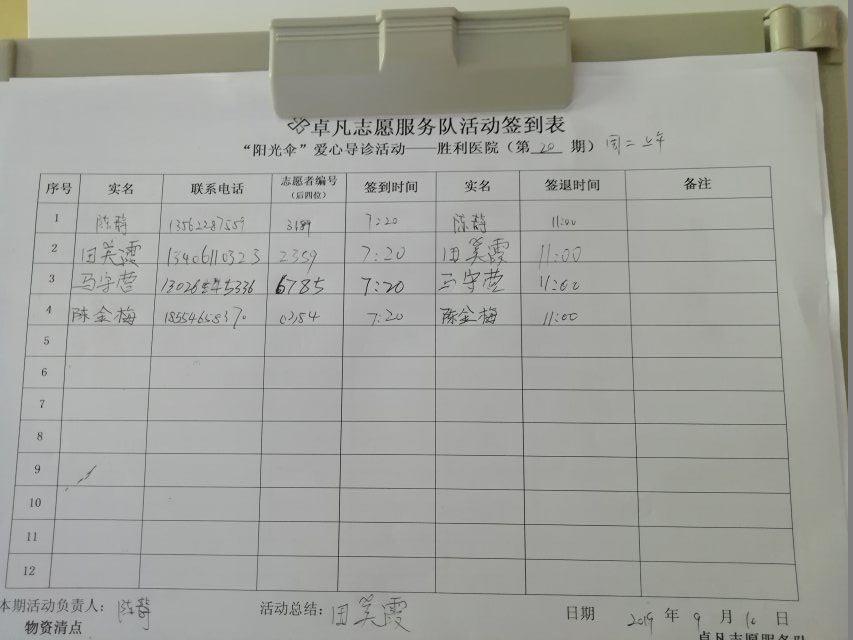 卓凡志愿服务队活动签到表
“阳光伞”爱心导诊活动——胜利医院（第 20 期） 周二上午
序号 实名 联系电话 志愿者编号（后四位） 签到时间 实名 签退时间 备注
1 陈静 13562287559 3189 7:20 陈静 11:00
2 田美霞 13406110323 2359 7:20 田美霞 11:00
3 马守营 6785 7:20 马守营 11:00
4 陈金梅 18554658370 7:20 陈金梅 11:00
5
6
7
8
9
10
11
12
本期活动负责人：陈静 活动总结：田美霞 日期 2019 年 9 月 10 日
物资清点 卓凡志愿服务队